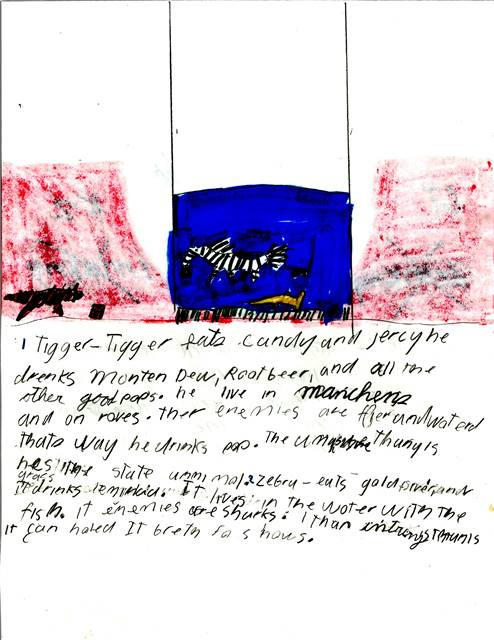 1 Tigger-Tigger eats candy and jercy he
drenks Monten Dew, Rootbeer, and all the
other good pops. he live in manchens
and on roves. ther enemies are fier and water
thats way he drinks pop. The thang is
hes the state annimal. 2 zebra-eats gold silver and
grass it drinks lemindid. It lives in the woter with the
fish. it enemies are sharks. 1 than intrengs than is
it can holed It breth for 5 hours.